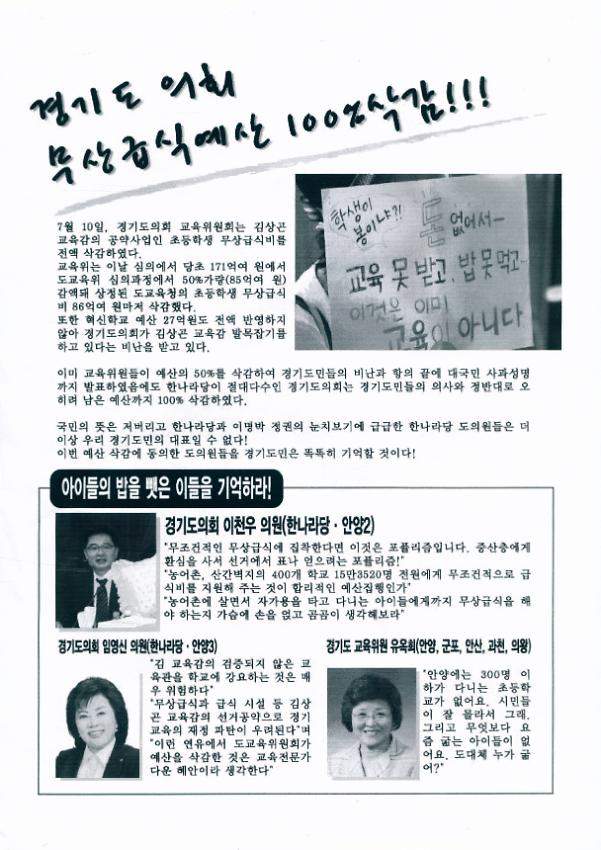 경기도 의회
무상급식예산 100%삭감!!!
7월 10일, 경기도의회 교육위원회는 김상곤
교육감의 공약사업인 초등학생 무상급식비를
전액 삭감하였다.
교육위는 이날 심의에서 당초 171억여 원에서
도교육위 심의과정에서 50%가량(85억여 원)
감액돼 상정된 도교육청의 초등학생 무상급식
비 86억여 원마저 삭감했다.
또한 혁신학교 예산 27억원도 전액 반영하지
않아 경기도의회가 김상곤 교육감 발목잡기를
하고 있다는 비난을 받고 있다.
학생이
봉이냐?!
돈 없어서~
교육 못 받고, 밥 못 먹고~
이것은 이미
교육이 아니다
이미 교육위원들이 예산의 50%를 삭감하여 경기도민들의 비난과 항의 끝에 대국민 사과성명
까지 발표하였음에도 한나라당이 절대다수인 경기도의회는 경기도민들의 의사와 정반대로 오
히려 남은 예산까지 100% 삭감하였다.
국민의 뜻은 저버리고 한나라당과 이명박 정권의 눈치보기에 급급한 한나라당 도의원들은 더
이상 우리 경기도민의 대표일 수 없다!
이번 예산 삭감에 동의한 도의원들을 경기도민은 똑똑히 기억할 것이다!
아이들의 밥을 뺏은 이들을 기억하라!
경기도의회 이천우 의원(한나라당·안양2)
"무조건적인 무상급식에 집착한다면 이것은 포퓰리즘입니다. 중산층에게
환심을 사서 선거에서 표나 얻으려는 포퓰리즘!"
"농어촌, 산간벽지의 400개 학교 15만3520명 전원에게 무조건적으로 급
식비를 지원해 주는 것이 합리적인 예산집행인가"
"농어촌에 살면서 자가용을 타고 다니는 아이들에게까지 무상급식을 해
야 하는지 가슴에 손을 얹고 곰곰이 생각해보라"
경기도의회 임영신 의원(한나라당·안양3)
"김 교육감의 검증되지 않은 교
육관을 학교에 강요하는 것은 매
우 위험하다"
"무상급식과 급식 시설 등 김상
곤 교육감의 선거공약으로 경기
교육의 재정 파탄이 우려된다"며
"이런 연유에서 도교육위원회가
예산을 삭감한 것은 교육전문가
다운 혜안이라 생각한다"
경기도 교육위원 유옥희(안양, 군포, 안산, 과천, 의왕)
"안양에는 300명 이
하가 다니는 초등학
교가 없어요. 시민들
이 잘 몰라서 그래.
그리고 무엇보다 요
즘 굶는 아이들이 없
어요. 도대체 누가 굶
어?"